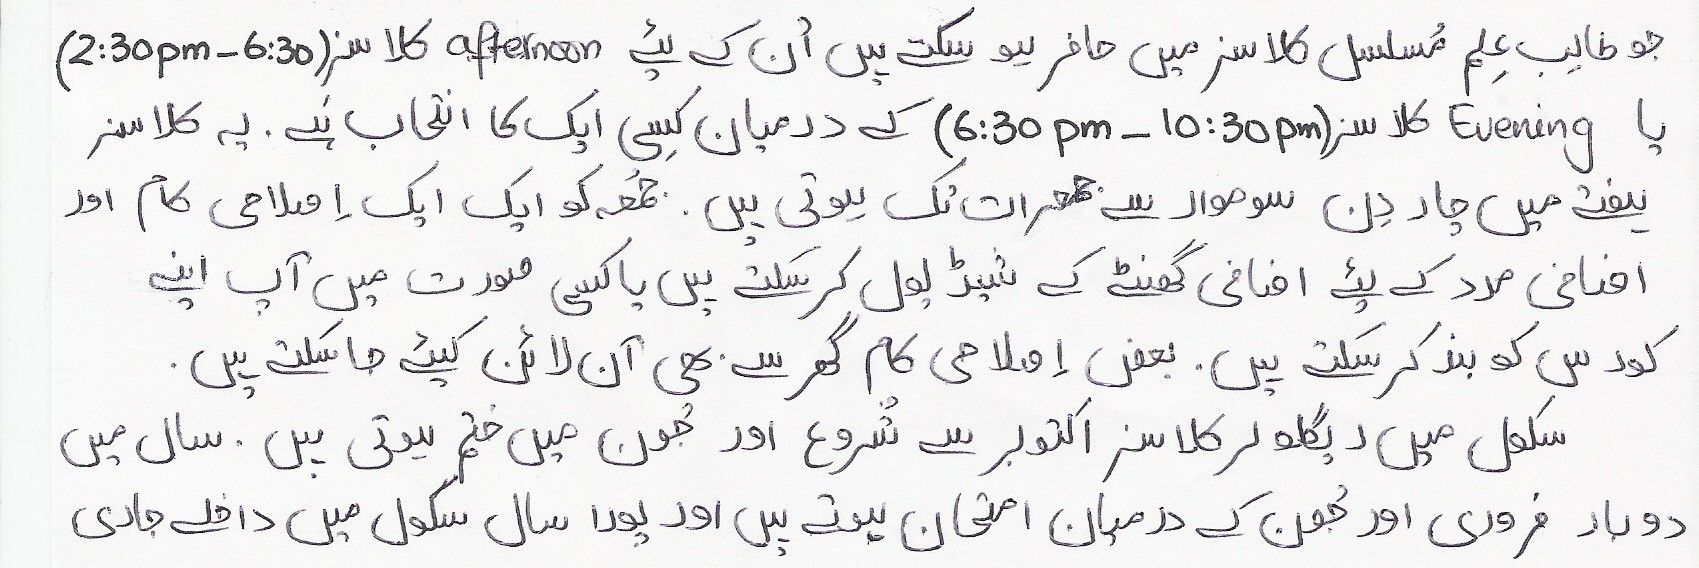 جو طالبِ عِلم مُسلسل کلاسز میں حاضر ہو سکتے ہیں اُن کے لئے afternoon کلاسز (2:30pm-6:30)
یا Evening کلاسز (6:30pm-10:30pm) کے درمیان کِسی ایک کا انتخاب ہے. یہ کلاسز
ہفتے میں چار دِن سوموار سے جمعرات تک ہوتی ہیں. جمُعہ کو ایک ایک اِصلاحی کام اور
اضافی مدد کے لئے اضافی گھنٹے کے شیڈیول کر سَکتے ہیں یا کسی صورت میں آپ اپنے
کورس کو بند کر سَکتے ہیں. بعض اِصلاحی کام گھر سے بھی آن لائن کیئے جا سَکتے ہیں.
سکول میں ریگلولر کلاسز اکتوبر سے شُروع اور جُون میں ختم ہوتی ہیں. سال میں
دو بار فروری اور جُون کے درمیان امتحان ہوتے ہیں اور پورا سال سکول میں داخلے جاری